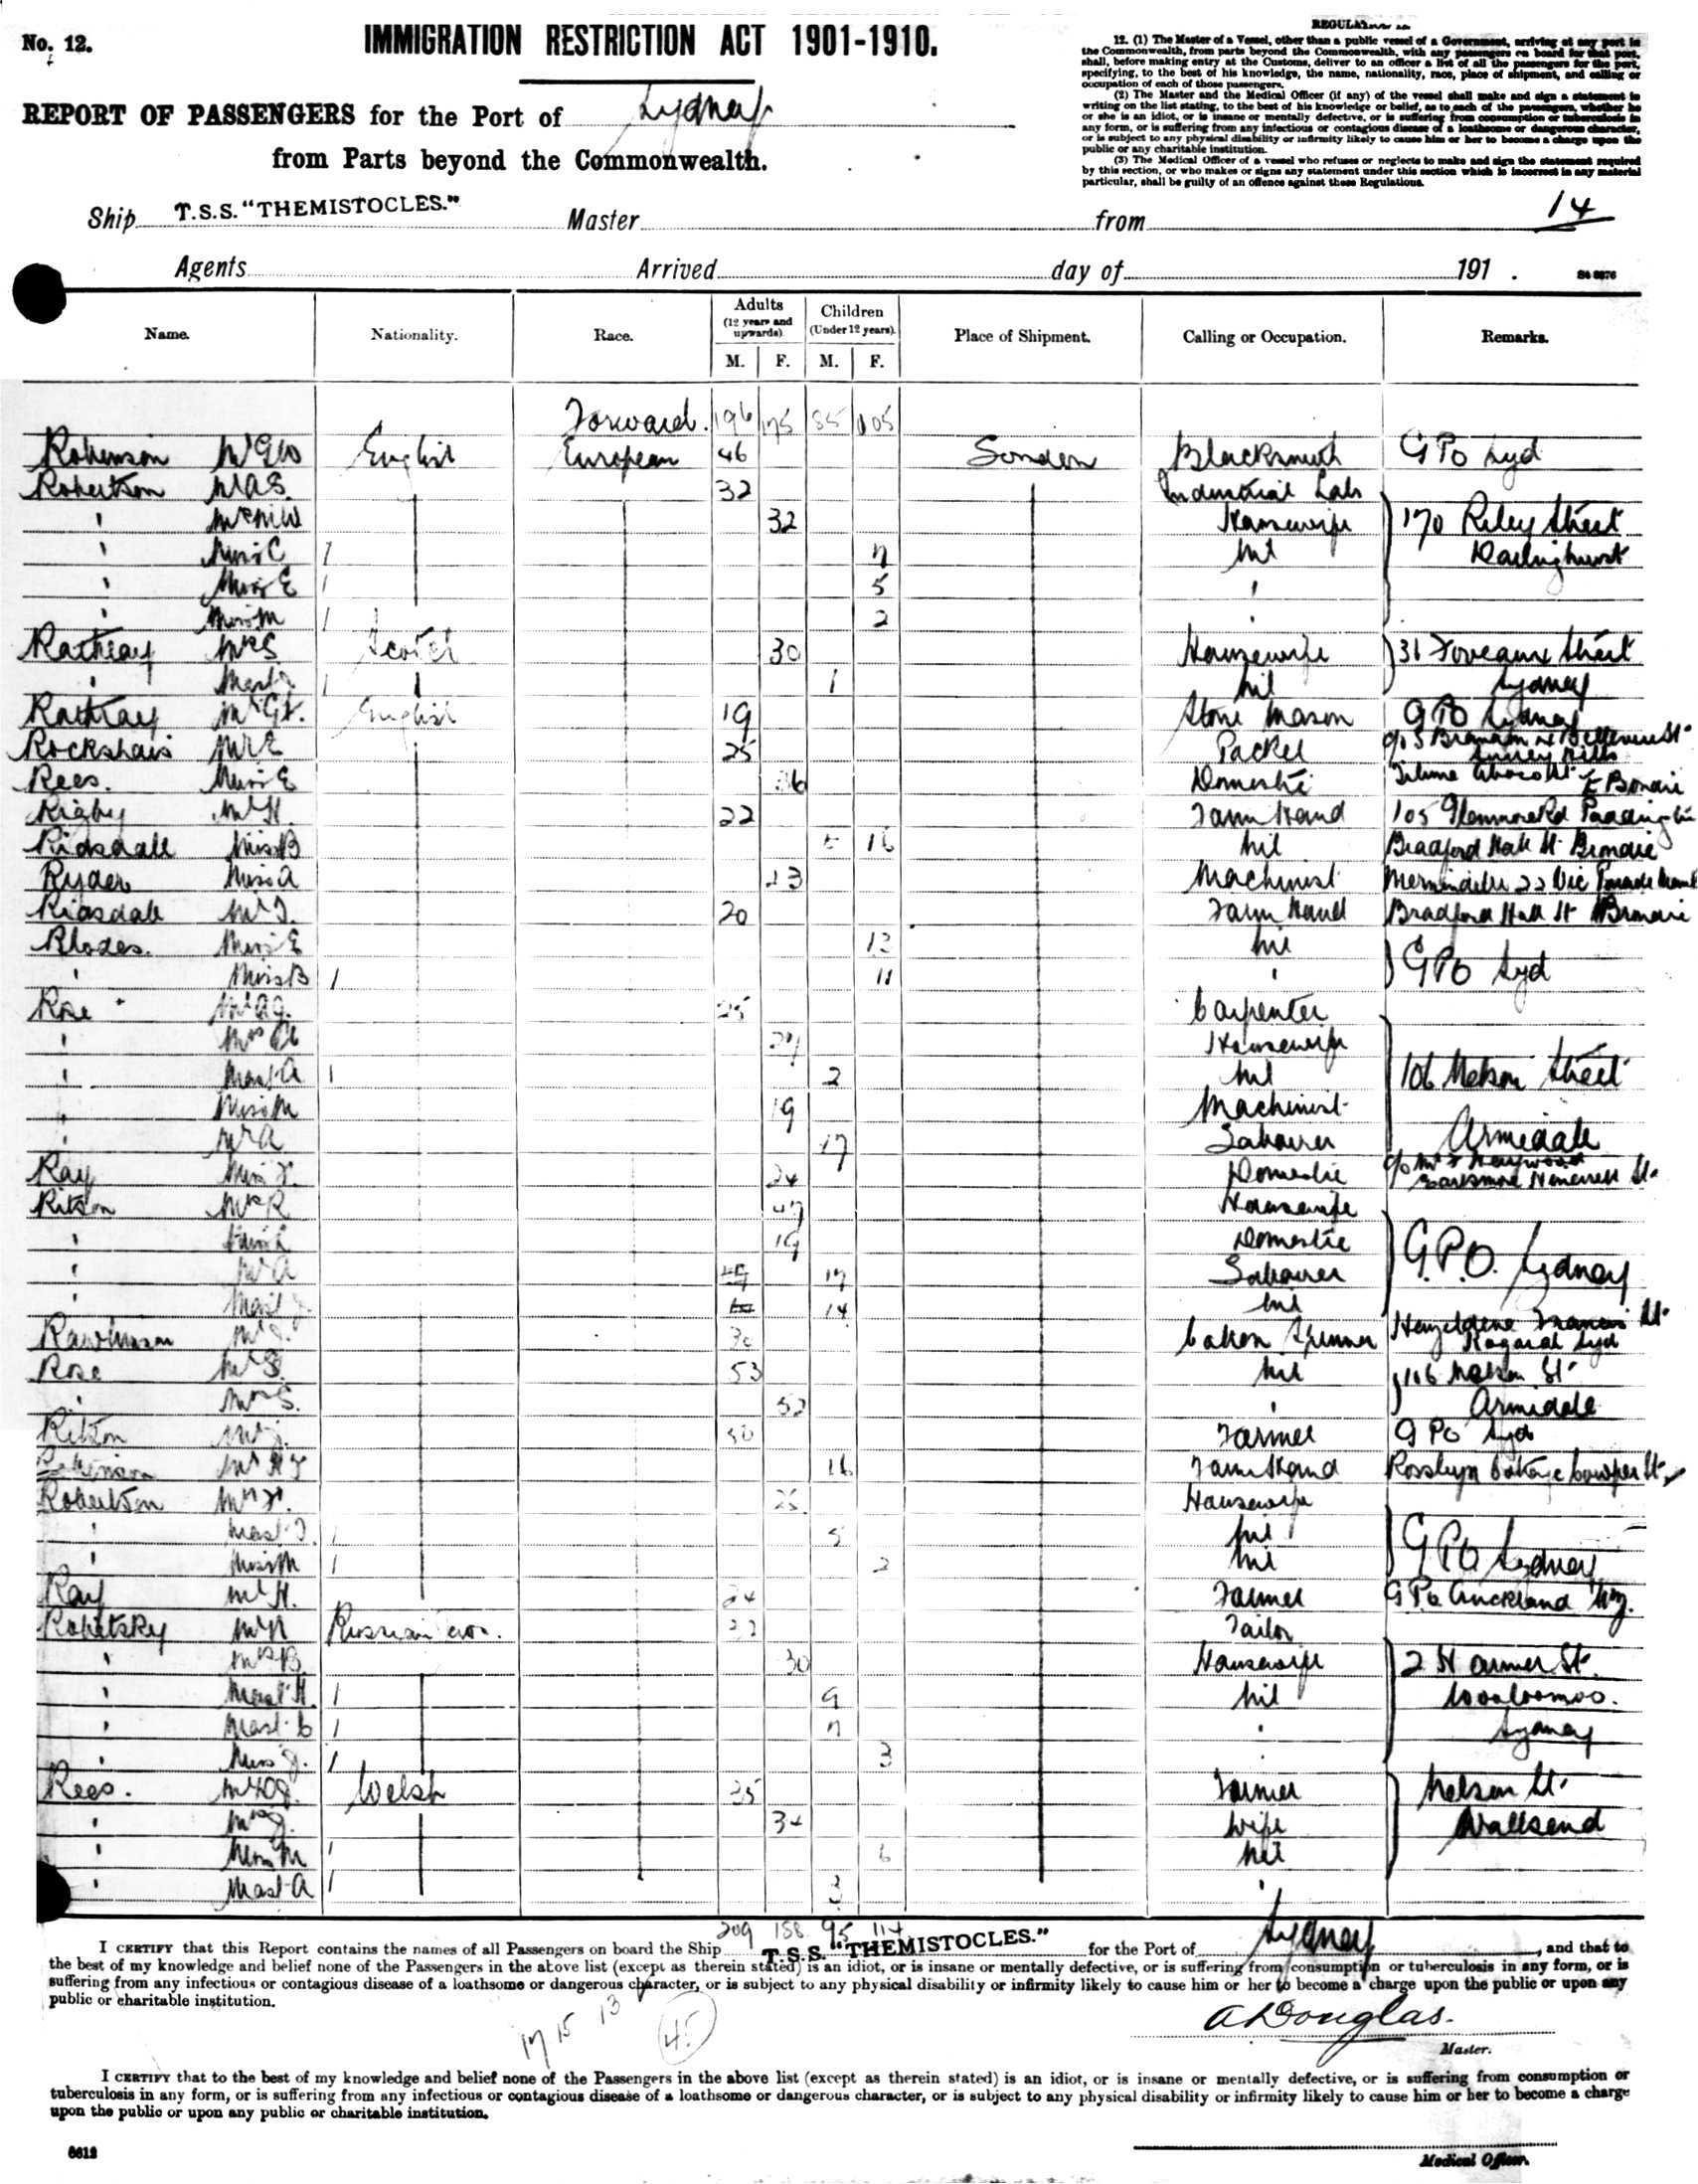 No. 12.
IMMIGRATION RESTRICTION ACT 1901-1910.
REPORT OF PASSENGERS for the Port of Sydney
from Parts beyond the Commonwealth.
12. (1) The Master of a Vessel, other than a public vessel of a Government, arriving at any port in
the Commonwealth, from parts beyond the Commonwealth, with any passengers on board for that port,
shall, before making entry at the Customs, deliver to an officer a list of all the passengers for the port,
specifying, to the best of his knowledge, the name, nationality, race, place of shipment, and calling or
occupation of each of those passengers.
(2) The Master and the Medical Officer (if any) of the vessel shall make and sign a statement in
writing on the list stating, to the best of his knowledge or belief, as to each of the passengers, whether he
or she is an idiot, or is insane or mentally defective, or is suffering from consumption or tuberculosis in
any form, or is suffering from any infectious or contagious disease of a loathsome or dangerous character,
or is subject to any physical disability or infirmity likely to cause him or her to become a charge upon the
public or any charitable institution.
(3) The Medical Officer of a vessel who refuses or neglects to make and sign the statement required
by this section, or who makes or signs any statement under this section which is incorrect in any material
particular, shall be guilty of an offence against these Regulations.
Ship T.S.S. "THEMISTOCLES." Master from 14
Agents Arrived day of 191 .
Name. Nationality. Race. Adults (12 years and upwards). Children (Under 12 years). Place of Shipment. Calling or Occupation. Remarks.
M. F. M. F.
Forward. 196 175 85 105
Robinson Mr G W English European 46 London Blacksmith GPO Syd
Robertson Mr A S. 32 Industrial Lab
" Mrs M W 32 Housewife 170 Riley Street
" Miss C 1 7 Nil Darlinghurst
" Miss E 1 5 "
" Miss M 1 2 "
Rathray Mrs S Scotch 30 Housewife 31 Foveaux Street
" Mast 1 1 Nil Sydney
Rathray Mr G English 19 Stone Mason GPO Sydney
Rockshaw Mr E 25 Packer Surry Hills
Rees. Miss E Domestic E Bondi
Rigby Mr H. 22 Farm Hand 105 Glenmore Rd Paddington
Ridsdale Miss B 16 Nil Bradford Hall St
Ryder Miss A 23 Machinist 22 Vic Parade
Ridsdale Mr J. 20 Farm Hand Bradford Hall St
Rhodes. Miss E 12 Nil
" Miss B 1 11 " GPO Syd
Rose Mr A G. 25 Carpenter
" Mrs 27 Housewife
" Mast A 1 2 Nil 106 Nelson Street
" Miss M 19 Machinist
" Mr A 17 Labourer Armidale
Ray Miss 24 Domestic c/o Mr
Ritson Mrs R 47 Housewife
" Miss L 19 Domestic
" Mr A 17 Labourer G.P.O. Sydney
" Mast J. 14 Nil
Rawlinson Mr J. 30 Cotton Spinner Kogarah Syd
Rose Mr S. 53 Nil 116 Nelson St
" Mrs S. 52 " Armidale
Ritson Mr J. 50 Farmer GPO Syd
Robinson Mr H J 16 Farm Hand Rosslyn Cottage Cowper St
Robertson Mrs 25 Housewife
" Mast J 1 5 Nil GPO Sydney
" Miss M 1 2 Nil
Ray Mr H. 24 Farmer GPO Auckland NZ.
Kopitsky Mr N Russian 32 Tailor
" Mrs B. 30 Housewife 2 Harmer St.
" Mast H. 1 9 Nil Wooloomoo.
" Mast C 1 7 " Sydney
" Miss J. 1 3 "
Rees. Mr Welsh 35 Farmer Nelson St.
" Mrs J. 34 Wife Wallsend
" Miss M 1 6 Nil
" Mast A 1 3 "
209 188 95 114
I CERTIFY that this Report contains the names of all Passengers on board the Ship T.S.S. "THEMISTOCLES." for the Port of Sydney, and that to
the best of my knowledge and belief none of the Passengers in the above list (except as therein stated) is an idiot, or is insane or mentally defective, or is suffering from consumption or tuberculosis in any form, or is
suffering from any infectious or contagious disease of a loathsome or dangerous character, or is subject to any physical disability or infirmity likely to cause him or her to become a charge upon the public or upon any
public or charitable institution.
17 15 13 45
A Douglas.
Master.
I CERTIFY that to the best of my knowledge and belief none of the Passengers in the above list (except as therein stated) is an idiot, or is insane or mentally defective, or is suffering from consumption or
tuberculosis in any form, or is suffering from any infectious or contagious disease of a loathsome or dangerous character, or is subject to any physical disability or infirmity likely to cause him or her to become a charge
upon the public or upon any public or charitable institution.
6612
Medical Officer.